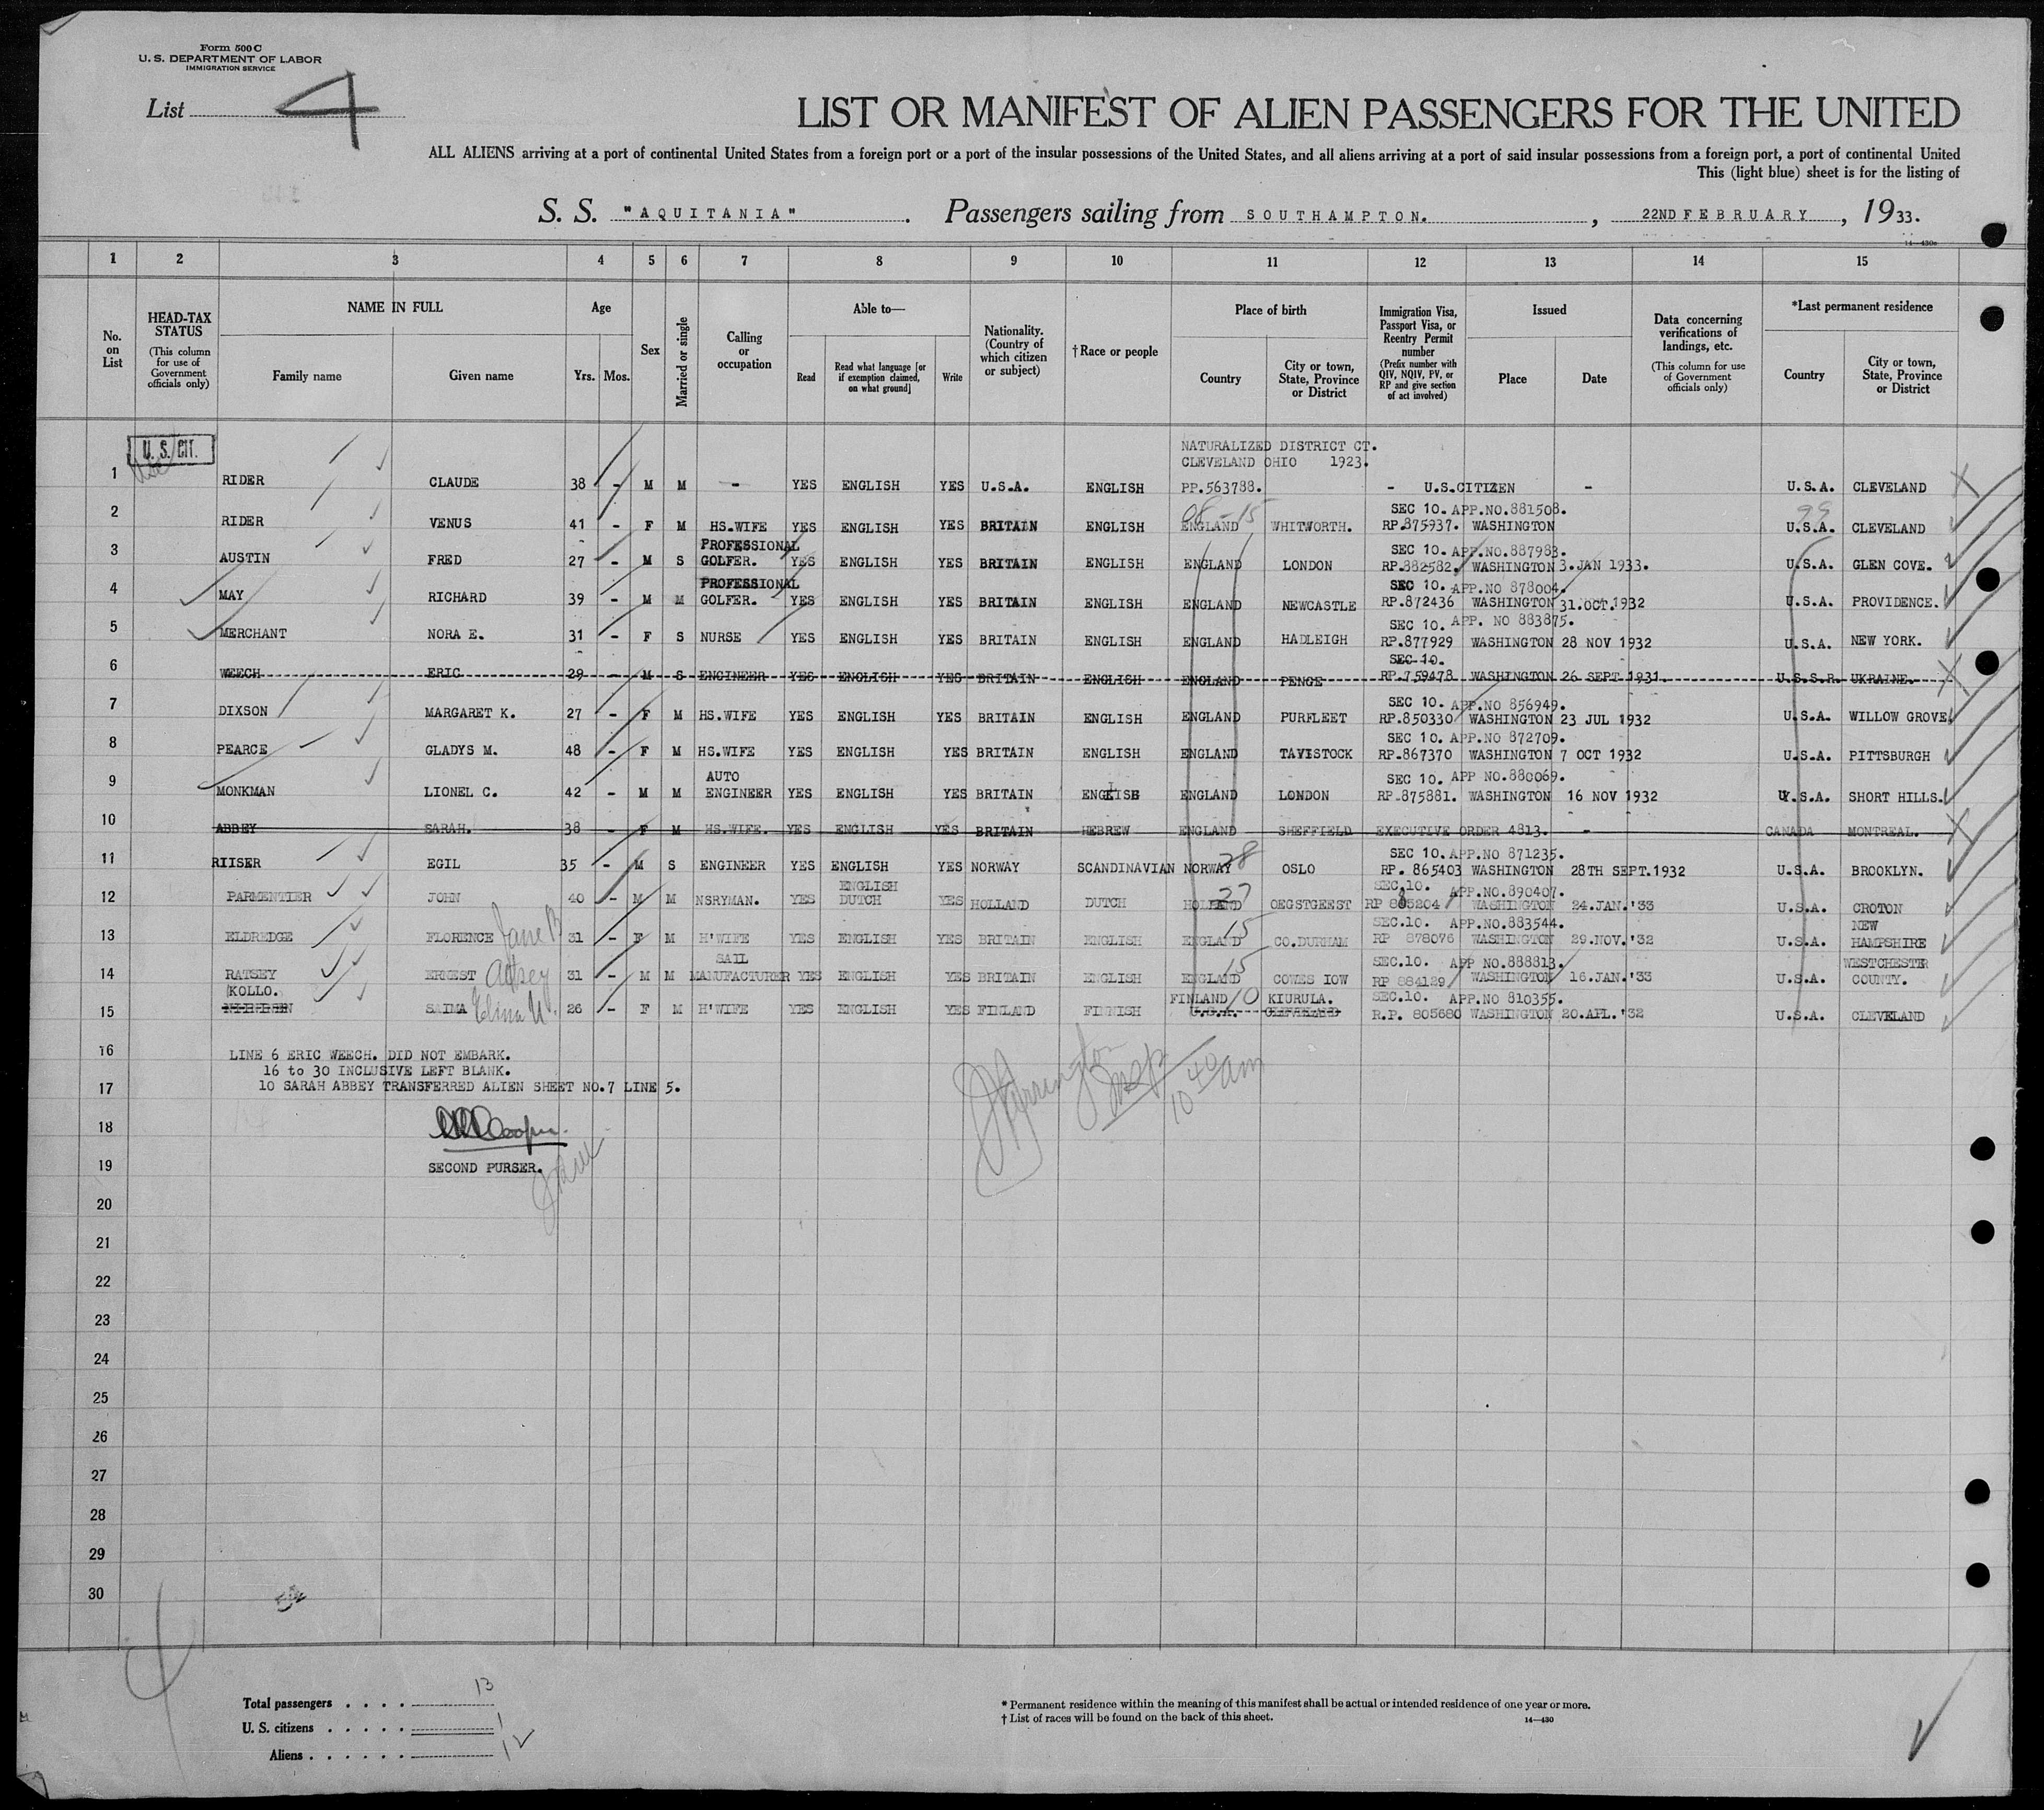 Form 500 C
U. S. DEPARTMENT OF LABOR
IMMIGRATION SERVICE
List 4
LIST OR MANIFEST OF ALIEN PASSENGERS FOR THE UNITED
ALL ALIENS arriving at a port of continental United States from a foreign port or a port of the insular possessions of the United States, and all aliens arriving at a port of said insular possessions from a foreign port, a port of continental United
This (light blue) sheet is for the listing of
S. S. "AQUITANIA". Passengers sailing from SOUTHAMPTON., 22ND FEBRUARY, 1933.
14—430c
1 2 3 4 5 6 7 8 9 10 11 12 13 14 15
No. on List
HEAD-TAX STATUS (This column for use of Government officials only)
NAME IN FULL
Family name Given name
Age
Yrs. Mos.
Sex
Married or single
Calling or occupation
Able to—
Read
Read what language [or if exemption claimed, on what ground]
Write
Nationality. (Country of which citizen or subject)
†Race or people
Place of birth
Country
City or town, State, Province or District
Immigration Visa, Passport Visa, or Reentry Permit number (Prefix number with QIV, NQIV, PV, or RP and give section of act involved)
Issued
Place Date
Data concerning verifications of landings, etc. (This column for use of Government officials only)
*Last permanent residence
Country
City or town, State, Province or District
U. S. CIT.
NATURALIZED DISTRICT CT.
CLEVELAND OHIO 1923.
1 RIDER CLAUDE 38 - M M - YES ENGLISH YES U.S.A. ENGLISH PP.563788. - U.S.CITIZEN - U.S.A. CLEVELAND
08-15 SEC 10. APP.NO.881508. 99
2 RIDER VENUS 41 - F M HS.WIFE YES ENGLISH YES BRITAIN ENGLISH ENGLAND WHITWORTH. RP.875937. WASHINGTON U.S.A. CLEVELAND
PROFESSIONAL SEC 10. APP.NO.887983.
3 AUSTIN FRED 27 - M S GOLFER. YES ENGLISH YES BRITAIN ENGLISH ENGLAND LONDON RP.882582. WASHINGTON 3.JAN 1933. U.S.A. GLEN COVE.
PROFESSIONAL SEC 10. APP.NO 878004.
4 MAY RICHARD 39 - M M GOLFER. YES ENGLISH YES BRITAIN ENGLISH ENGLAND NEWCASTLE RP.872436 WASHINGTON 31.OCT.1932 U.S.A. PROVIDENCE.
SEC 10. APP. NO 883875.
5 MERCHANT NORA E. 31 - F S NURSE YES ENGLISH YES BRITAIN ENGLISH ENGLAND HADLEIGH RP.877929 WASHINGTON 28 NOV 1932 U.S.A. NEW YORK.
SEC 10.
6 WEECH ERIC 29 - M S ENGINEER YES ENGLISH YES BRITAIN ENGLISH ENGLAND PENGE RP.759478 WASHINGTON 26 SEPT 1931. U.S.S.R. UKRAINE.
SEC 10. APP.NO 856949.
7 DIXSON MARGARET K. 27 - F M HS.WIFE YES ENGLISH YES BRITAIN ENGLISH ENGLAND PURFLEET RP.850330 WASHINGTON 23 JUL 1932 U.S.A. WILLOW GROVE
SEC 10. APP.NO 872709.
8 PEARCE GLADYS M. 48 - F M HS.WIFE YES ENGLISH YES BRITAIN ENGLISH ENGLAND TAVISTOCK RP.867370 WASHINGTON 7 OCT 1932 U.S.A. PITTSBURGH
AUTO SEC 10. APP NO.880069.
9 MONKMAN LIONEL C. 42 - M M ENGINEER YES ENGLISH YES BRITAIN ENGLISH ENGLAND LONDON RP.875881. WASHINGTON 16 NOV 1932 U.S.A. SHORT HILLS.
10 ABBEY SARAH. 38 - F M HS.WIFE. YES ENGLISH YES BRITAIN HEBREW ENGLAND SHEFFIELD EXECUTIVE ORDER 4813. - CANADA MONTREAL.
28 SEC 10. APP.NO 871235.
11 RIISER EGIL 35 - M S ENGINEER YES ENGLISH YES NORWAY SCANDINAVIAN NORWAY OSLO RP. 865403 WASHINGTON 28TH SEPT.1932 U.S.A. BROOKLYN.
ENGLISH 27 SEC.10. APP.NO.890407.
12 PARMENTIER JOHN 40 - M M NSRYMAN. YES DUTCH YES HOLLAND DUTCH HOLLAND OEGSTGEEST RP 885204 WASHINGTON 24.JAN.'33 U.S.A. CROTON
15 SEC.10. APP.NO.883544. NEW
13 ELDREDGE FLORENCE Jane B 31 - F M H'WIFE YES ENGLISH YES BRITAIN ENGLISH ENGLAND CO.DURHAM RP 878076 WASHINGTON 29.NOV.'32 U.S.A. HAMPSHIRE
SAIL 15 SEC.10. APP NO.888813. WESTCHESTER
14 RATSEY ERNEST 31 - M M MANUFACTURER YES ENGLISH YES BRITAIN ENGLISH ENGLAND COWES IOW RP 884129 WASHINGTON 16.JAN.'33 U.S.A. COUNTY.
KOLLO. FINLAND 10 KIURULA. SEC.10. APP.NO 810355.
15 SAIMA Elina 26 - F M H'WIFE YES ENGLISH YES FINLAND FINNISH U.S.A. CLEVELAND R.P. 805680 WASHINGTON 20.APL.'32 U.S.A. CLEVELAND
16 LINE 6 ERIC WEECH. DID NOT EMBARK.
16 to 30 INCLUSIVE LEFT BLANK.
17 10 SARAH ABBEY TRANSFERRED ALIEN SHEET NO.7 LINE 5.
Insp
10 40 am
18
19 SECOND PURSER.
20
21
22
23
24
25
26
27
28
29
30
Total passengers . . . . 13
U. S. citizens . . . . . 1
Aliens . . . . . . 12
* Permanent residence within the meaning of this manifest shall be actual or intended residence of one year or more.
† List of races will be found on the back of this sheet.
14—430